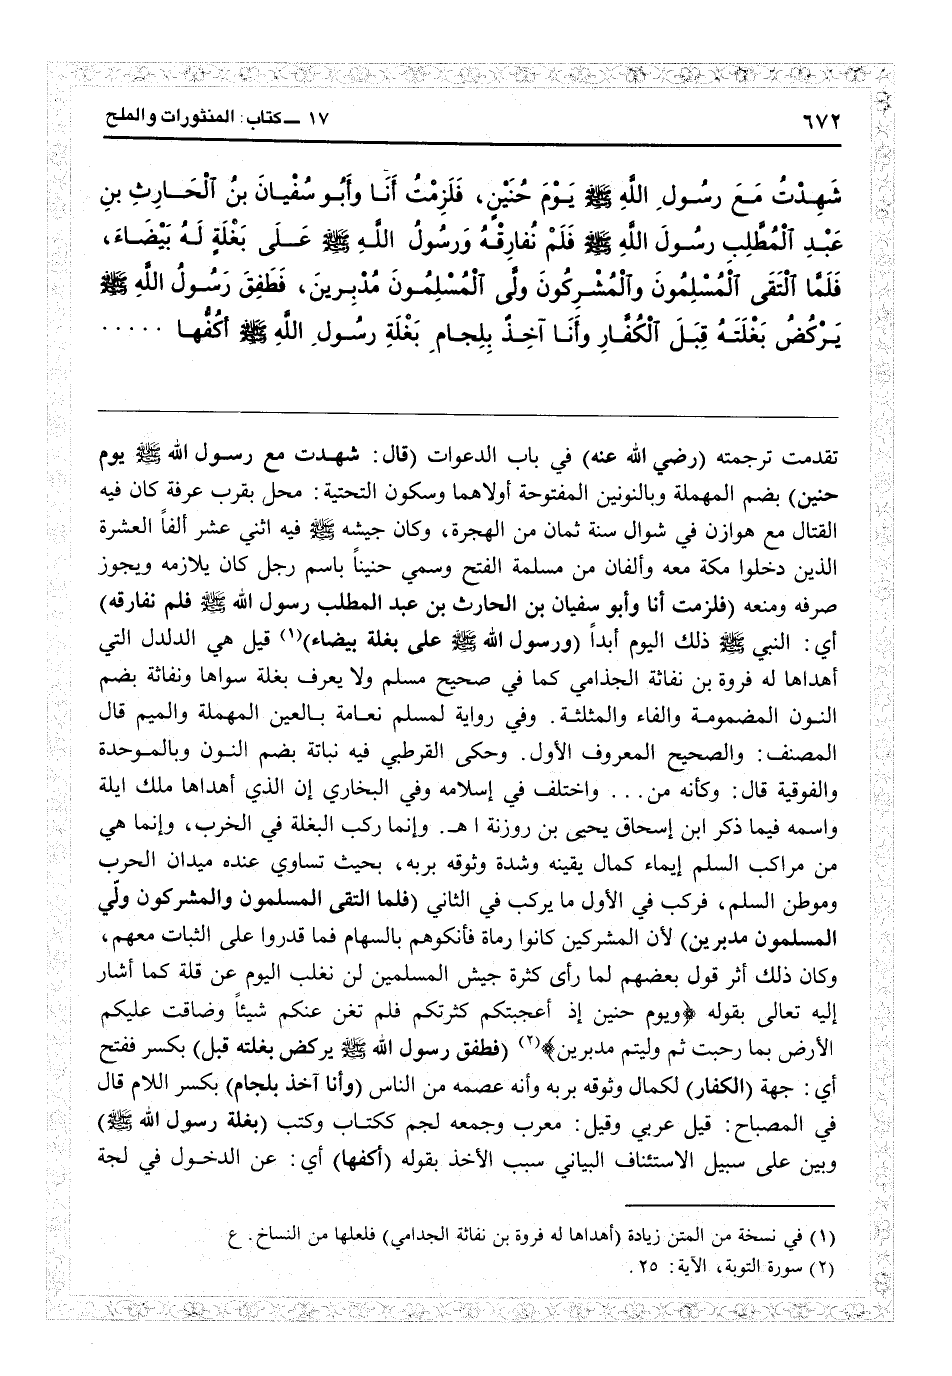 ٦٧٢
١٧ ـ كتاب: المنثورات والملح
شَهِدْتُ مَعَ رسُولِ اللَّهِ ﷺ يَوْمَ حُنَيْنٍ، فَلَزِمْتُ أَنَا وأَبُو سُفْيانَ بنُ ٱلْحَارِثِ بنِ
عَبْدِ ٱلْمُطَّلِبِ رسُولَ اللَّهِ ﷺ فَلَمْ نُفارِقْهُ وَرسُولُ اللَّهِ ﷺ عَلَى بَغْلَةٍ لَهُ بَيْضَاءَ،
فَلَمَّا ٱلْتَقَى ٱلْمُسْلِمُونَ وٱلْمُشْرِكُونَ ولَّى ٱلْمُسْلِمُونَ مُدْبِرينَ، فَطَفِقَ رَسُولُ اللَّهِ ﷺ
يَرْكُضُ بَغْلَتَهُ قِبَلَ ٱلْكُفَّارِ وأَنَا آخِذٌ بِلِجامِ بَغْلَةِ رسُولِ اللَّهِ ﷺ أكُفُّها .....
تقدمت ترجمته (رضي الله عنه) في باب الدعوات (قال: شهدت مع رسول الله ﷺ يوم
حنين) بضم المهملة وبالنونين المفتوحة أولاهما وسكون التحتية: محل بقرب عرفة كان فيه
القتال مع هوازن في شوال سنة ثمان من الهجرة، وكان جيشه ﷺ فيه اثني عشر ألفاً العشرة
الذين دخلوا مكة معه وألفان من مسلمة الفتح وسمي حنيناً باسم رجل كان يلازمه ويجوز
صرفه ومنعه (فلزمت أنا وأبو سفيان بن الحارث بن عبد المطلب رسول الله ﷺ فلم نفارقه)
أي: النبي ﷺ ذلك اليوم أبداً (ورسول الله ﷺ على بغلة بيضاء)(١) قيل هي الدلدل التي
أهداها له فروة بن نفاثة الجذامي كما في صحيح مسلم ولا يعرف بغلة سواها ونفاثة بضم
النون المضمومة والفاء والمثلثة. وفي رواية لمسلم نعامة بالعين المهملة والميم قال
المصنف: والصحيح المعروف الأول. وحكى القرطبي فيه نباتة بضم النون وبالموحدة
والفوقية قال: وكأنه من... واختلف في إسلامه وفي البخاري إن الذي أهداها ملك ايلة
واسمه فيما ذكر ابن إسحاق يحيى بن روزنة اهـ. وإنما ركب البغلة في الخرب، وإنما هي
من مراكب السلم إيماء كمال يقينه وشدة وثوقه بربه، بحيث تساوي عنده ميدان الحرب
وموطن السلم، فركب في الأول ما يركب في الثاني (فلما التقى المسلمون والمشركون ولّي
المسلمون مدبرين) لأن المشركين كانوا رماة فأنكوهم بالسهام فما قدروا على الثبات معهم،
وكان ذلك أثر قول بعضهم لما رأى كثرة جيش المسلمين لن نغلب اليوم عن قلة كما أشار
إليه تعالى بقوله ﴿ويوم حنين إذ أعجبتكم كثرتكم فلم تغن عنكم شيئاً وضاقت عليكم
الأرض بما رحبت ثم وليتم مدبرين﴾(٢) (فطفق رسول الله ﷺ يركض بغلته قبل) بكسر ففتح
أي: جهة (الكفار) لكمال وثوقه بربه وأنه عصمه من الناس (وأنا آخذ بلجام) بكسر اللام قال
في المصباح: قيل عربي وقيل: معرب وجمعه لجم ككتاب وكتب (بغلة رسول الله ﷺ)
وبين على سبيل الاستئناف البياني سبب الأخذ بقوله (أكفها) أي: عن الدخول في لجة
(١) في نسخة من المتن زيادة (أهداها له فروة بن نفاثة الجدامي) فلعلها من النساخ. ع
(٢) سورة التوبة، الآية: ٢٥.